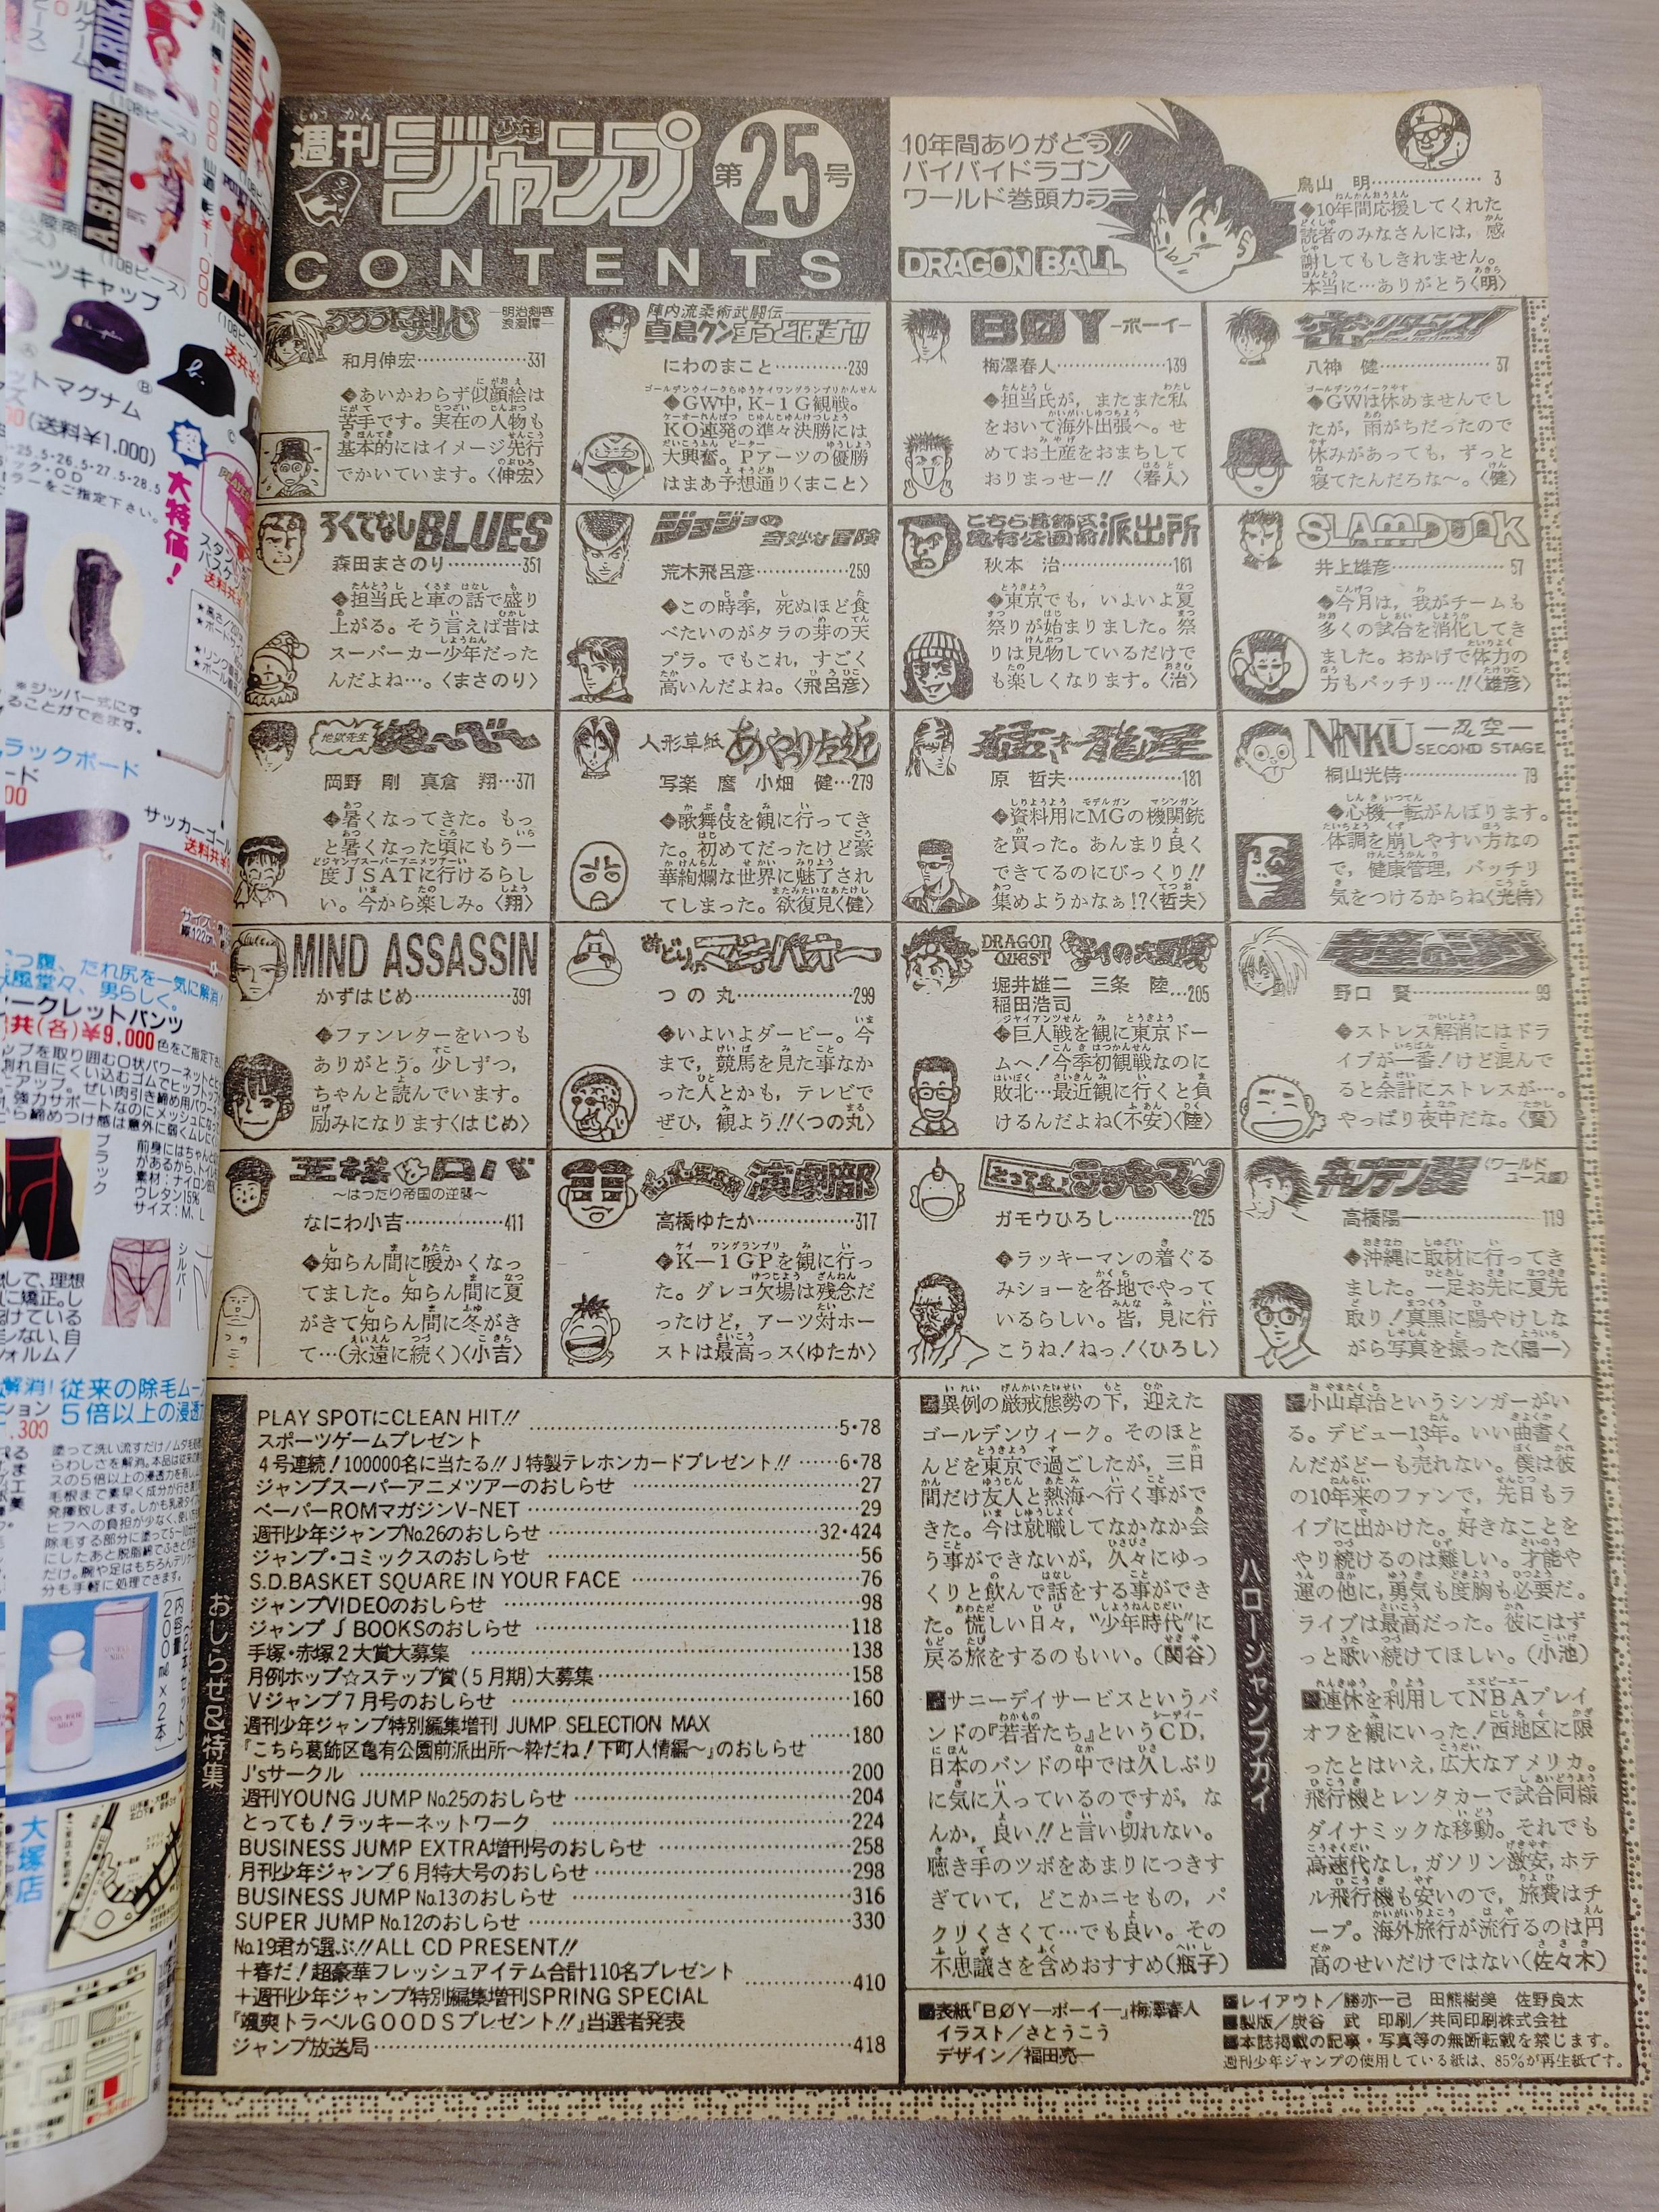 週刊少年ジャンプ 第25号
CONTENTS
10年間ありがとう!
バイバイドラゴン
ワールド巻頭カラー
DRAGON BALL
鳥山 明………………3
◆10年間応援してくれた
読者のみなさんには,感
謝してもしきれません。
本当に…ありがとう〈明〉
密・リターンズ!
八神 健………………37
◆GWは休めませんでし
たが,雨がちだったので
休みがあっても,ずっと
寝てたんだろな〜。〈健〉
SLAM DUNK
井上雄彦………………57
◆今月は,我がチームも
多くの試合を消化してき
ました。おかげで体力の
方もバッチリ…!!〈雄彦〉
NINKŪ —忍空—
SECOND STAGE
桐山光侍………………79
◆心機一転がんばります。
体調を崩しやすい方なの
で,健康管理,バッチリ
気をつけるからね〈光侍〉
野口 賢………………99
◆ストレス解消にはドラ
イブが一番!けど混んで
ると余計にストレスが…。
やっぱり夜中だな。〈賢〉
キャプテン翼〈ワールドユース編〉
高橋陽一………………119
◆沖縄に取材に行ってき
ました。一足お先に夏先
取り!真黒に陽やけしな
がら写真を撮った〈陽一〉
BØY —ボーイ—
梅澤春人………………139
◆担当氏が,またまた私
をおいて海外出張へ。せ
めてお土産をおまちして
おりまっせー!!〈春人〉
こちら葛飾区亀有公園前派出所
秋本 治………………161
◆東京でも,いよいよ夏
祭りが始まりました。祭
りは見物しているだけで
も楽しくなります。〈治〉
猛き龍星
原 哲夫………………181
◆資料用にMGの機関銃
を買った。あんまり良く
できてるのにびっくり!!
集めようかなぁ!?〈哲夫〉
DRAGON QUEST ダイの大冒険
堀井雄二 三条 陸
稲田浩司…205
◆巨人戦を観に東京ドー
ムへ!今季初観戦なのに
敗北…最近観に行くと負
けるんだよね(不安)〈陸〉
とっても!ラッキーマン
ガモウひろし…………225
◆ラッキーマンの着ぐる
みショーを各地でやって
いるらしい。皆,見に行
こうね!ねっ!〈ひろし〉
陣内流柔術武闘伝
真島クンすっとばす!!
にわのまこと…………239
◆GW中,K-1G観戦。
KO連発の準々決勝には
大興奮。Pアーツの優勝
はまあ予想通り〈まこと〉
ジョジョの奇妙な冒険
荒木飛呂彦……………259
◆この時季,死ぬほど食
べたいのがタラの芽の天
プラ。でもこれ,すごく
高いんだよね。〈飛呂彦〉
人形草紙あやつり左近
写楽 麿 小畑 健…279
◆歌舞伎を観に行ってき
た。初めてだったけど豪
華絢爛な世界に魅了され
てしまった。欲復見〈健〉
みどりのマキバオー
つの丸………………299
◆いよいよダービー。今
まで,競馬を見た事なか
った人とかも,テレビで
ぜひ,観よう!!〈つの丸〉
演劇部
高橋ゆたか……………317
◆K-1GPを観に行っ
た。グレコ欠場は残念だ
ったけど,アーツ対ホー
ストは最高っス〈ゆたか〉
るろうに剣心 —明治剣客浪漫譚—
和月伸宏………………331
◆あいかわらず似顔絵は
苦手です。実在の人物も
基本的にはイメージ先行
でかいています。〈伸宏〉
ろくでなしBLUES
森田まさのり…………351
◆担当氏と車の話で盛り
上がる。そう言えば昔は
スーパーカー少年だった
んだよね…。〈まさのり〉
地獄先生ぬ〜べ〜
岡野 剛 真倉 翔…371
◆暑くなってきた。もっ
と暑くなった頃にもう一
度JSATに行けるらし
い。今から楽しみ。〈翔〉
MIND ASSASSIN
かずはじめ……………391
◆ファンレターをいつも
ありがとう。少しずつ,
ちゃんと読んでいます。
励みになります〈はじめ〉
王様はロバ
〜はったり帝国の逆襲〜
なにわ小吉……………411
◆知らん間に暖かくなっ
てました。知らん間に夏
がきて知らん間に冬がき
て…(永遠に続く)〈小吉〉
おしらせ&特集
PLAY SPOTにCLEAN HIT!!
スポーツゲームプレゼント………5・78
4号連続!100000名に当たる!!J特製テレホンカードプレゼント!!……6・78
ジャンプスーパーアニメツアーのおしらせ………27
ペーパーROMマガジンV-NET………29
週刊少年ジャンプNo.26のおしらせ………32・424
ジャンプ・コミックスのおしらせ………56
S.D.BASKET SQUARE IN YOUR FACE………76
ジャンプVIDEOのおしらせ………98
ジャンプ J BOOKSのおしらせ………118
手塚・赤塚2大賞大募集………138
月例ホップ☆ステップ賞(5月期)大募集………158
Vジャンプ7月号のおしらせ………160
週刊少年ジャンプ特別編集増刊 JUMP SELECTION MAX
『こちら葛飾区亀有公園前派出所〜粋だね!下町人情編〜』のおしらせ……180
J'sサークル………200
週刊YOUNG JUMP No.25のおしらせ………204
とっても!ラッキーネットワーク………224
BUSINESS JUMP EXTRA増刊号のおしらせ………258
月刊少年ジャンプ6月特大号のおしらせ………298
BUSINESS JUMP No.13のおしらせ………316
SUPER JUMP No.12のおしらせ………330
No.19君が選ぶ!!ALL CD PRESENT!!
+春だ!超豪華フレッシュアイテム合計110名プレゼント
+週刊少年ジャンプ特別編集増刊SPRING SPECIAL………410
『颯爽トラベルGOODSプレゼント!!』当選者発表
ジャンプ放送局………418
ハロージャンプガイ
■小山卓治というシンガーがい
る。デビュー13年。いい曲書く
んだがどーも売れない。僕は彼
の10年来のファンで,先日もラ
イブに出かけた。好きなことを
やり続けるのは難しい。才能や
運の他に,勇気も度胸も必要だ。
ライブは最高だった。彼にはず
っと歌い続けてほしい。(小池)
■連休を利用してNBAプレイ
オフを観にいった!西地区に限
ったとはいえ,広大なアメリカ。
飛行機とレンタカーで試合同様
ダイナミックな移動。それでも
高速代なし,ガソリン激安,ホテ
ル飛行機も安いので,旅費はチ
ープ。海外旅行が流行るのは円
高のせいだけではない(佐々木)
■異例の厳戒態勢の下,迎えた
ゴールデンウィーク。そのほと
んどを東京で過ごしたが,三日
間だけ友人と熱海へ行く事がで
きた。今は就職してなかなか会
う事ができないが,久々にゆっ
くりと飲んで話をする事ができ
た。慌しい日々,"少年時代"に
戻る旅をするのもいい。(関谷)
■サニーデイサービスというバ
ンドの『若者たち』というCD,
日本のバンドの中では久しぶり
に気に入っているのですが,な
んか,良い!!と言い切れない。
聴き手のツボをあまりにつきす
ぎていて,どこかニセもの,パ
クリくさくて…でも良い。その
不思議さを含めおすすめ(瓶子)
■表紙「BØY—ボーイ—」梅澤春人
イラスト/さとうこう
デザイン/福田亮一
■レイアウト/勝亦一己 田熊樹美 佐野良太
■製版/炭谷 武 印刷/共同印刷株式会社
■本誌掲載の記事・写真等の無断転載を禁じます。
週刊少年ジャンプの使用している紙は、85%が再生紙です。
K.RUKA
A.SENDOH
HANAMICHI.R
(108ピース)
仙道 彰 ¥1,000
(送料¥1,000)
大特価!
ラックボード
サッカーゴール
ークレットパンツ
共(各)¥9,000
ブラック
シルバー
サイズ:M、L
従来の除毛ムー
5倍以上の浸透
内容量
200ml×2本
大塚店